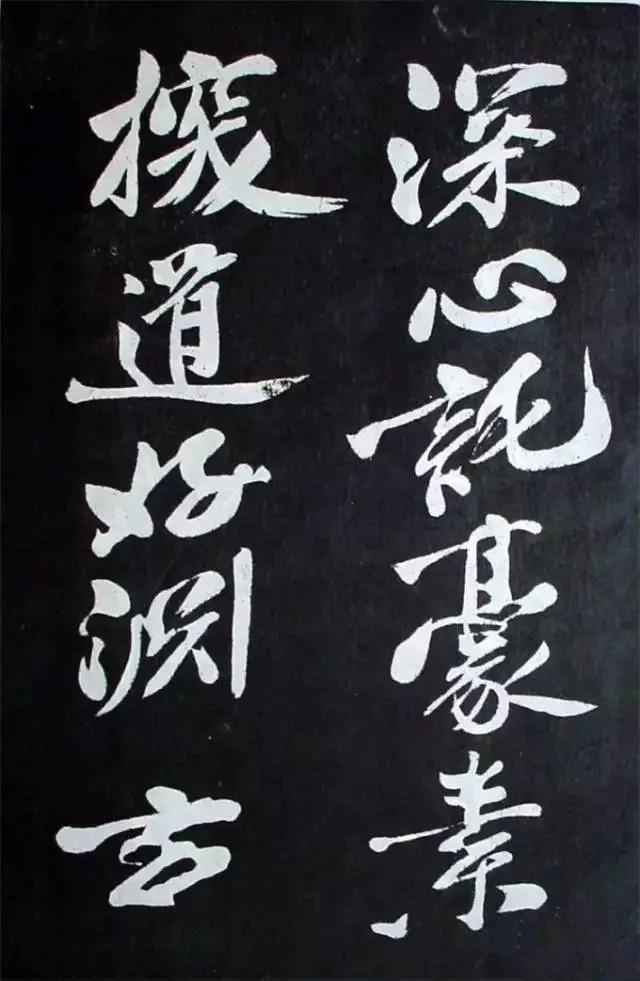 深心託豪素
探道好淵玄